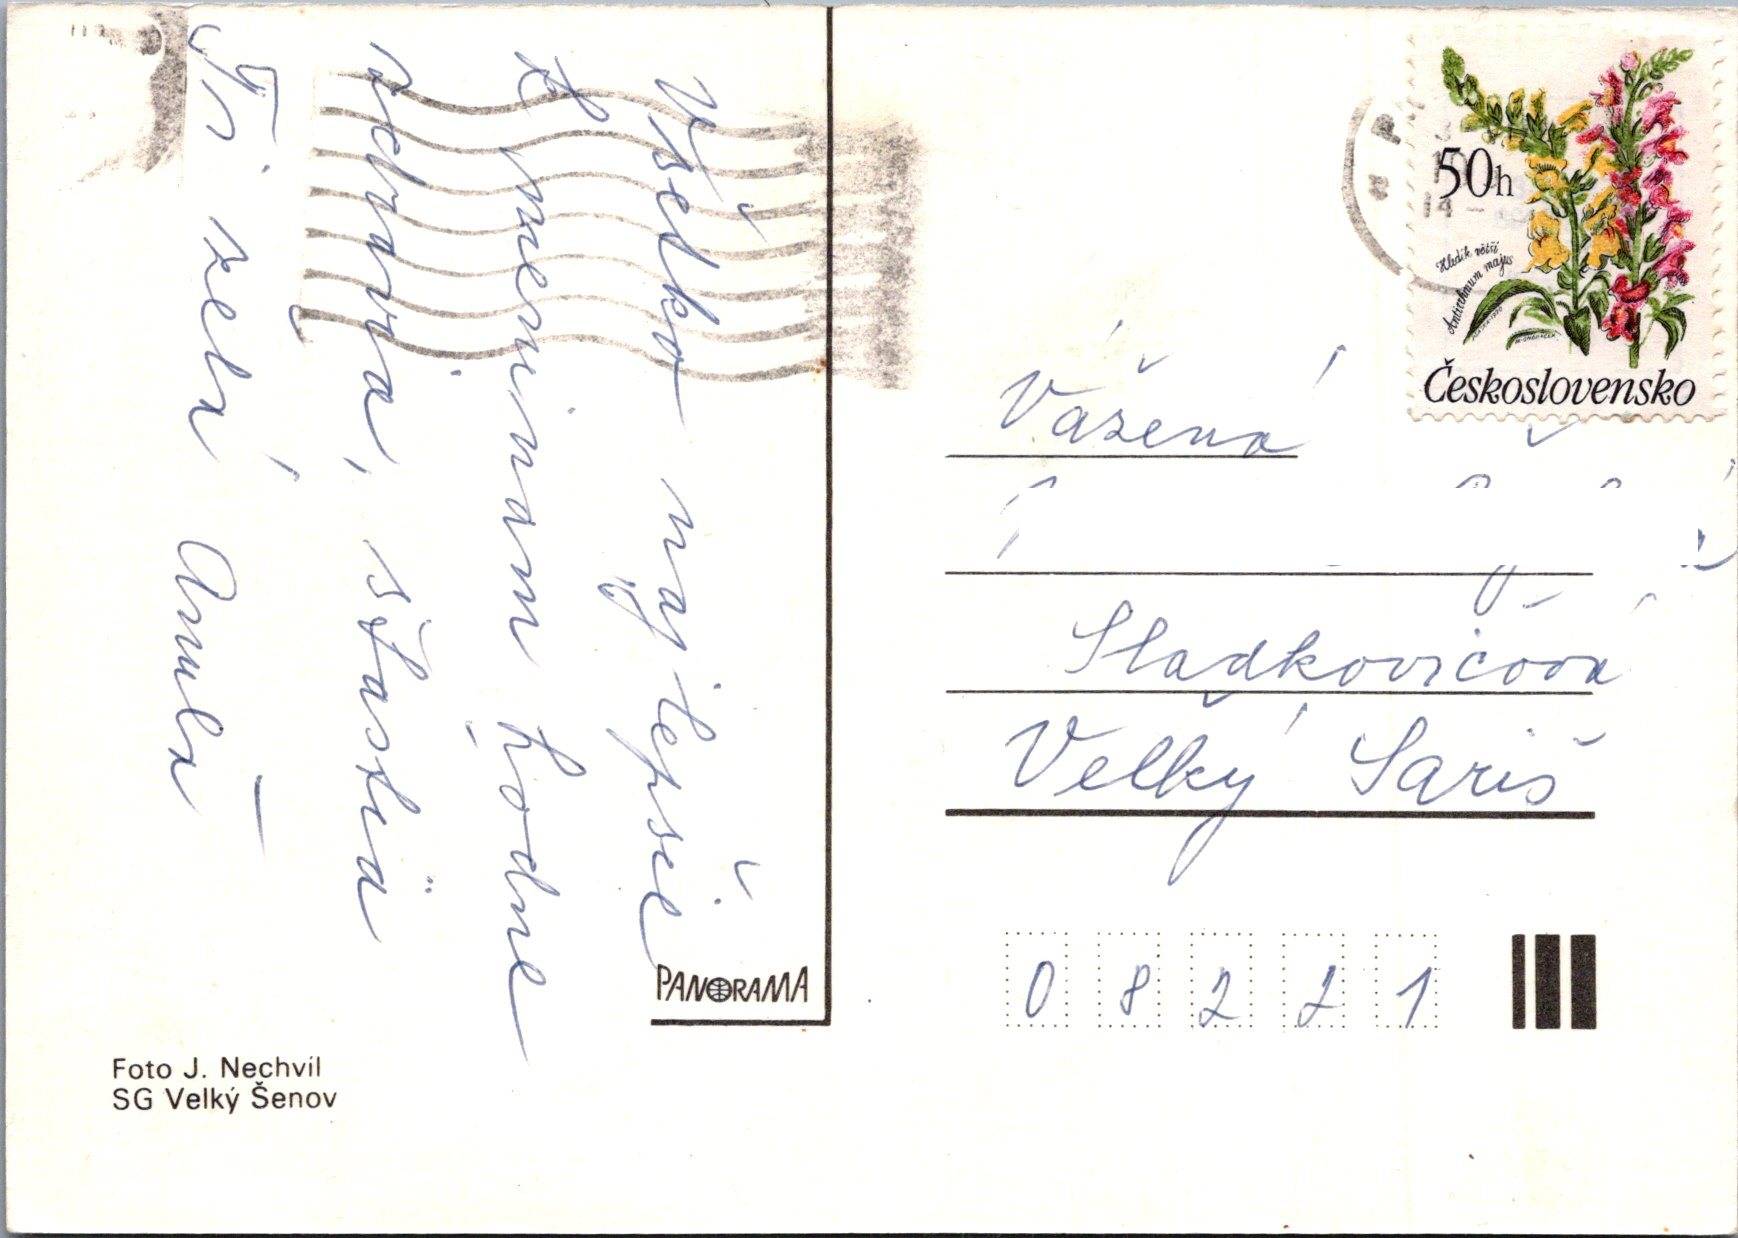 Všetko najlepšie
k meninam hodne
zdravia, šťastia
Ti želá Anula
PANORAMA
Foto J. Nechvíl
SG Velký Šenov
50h
Hledík větší
Antirrhinum majus
Československo
Vážená
Sládkovičová
Velký Šariš
08221